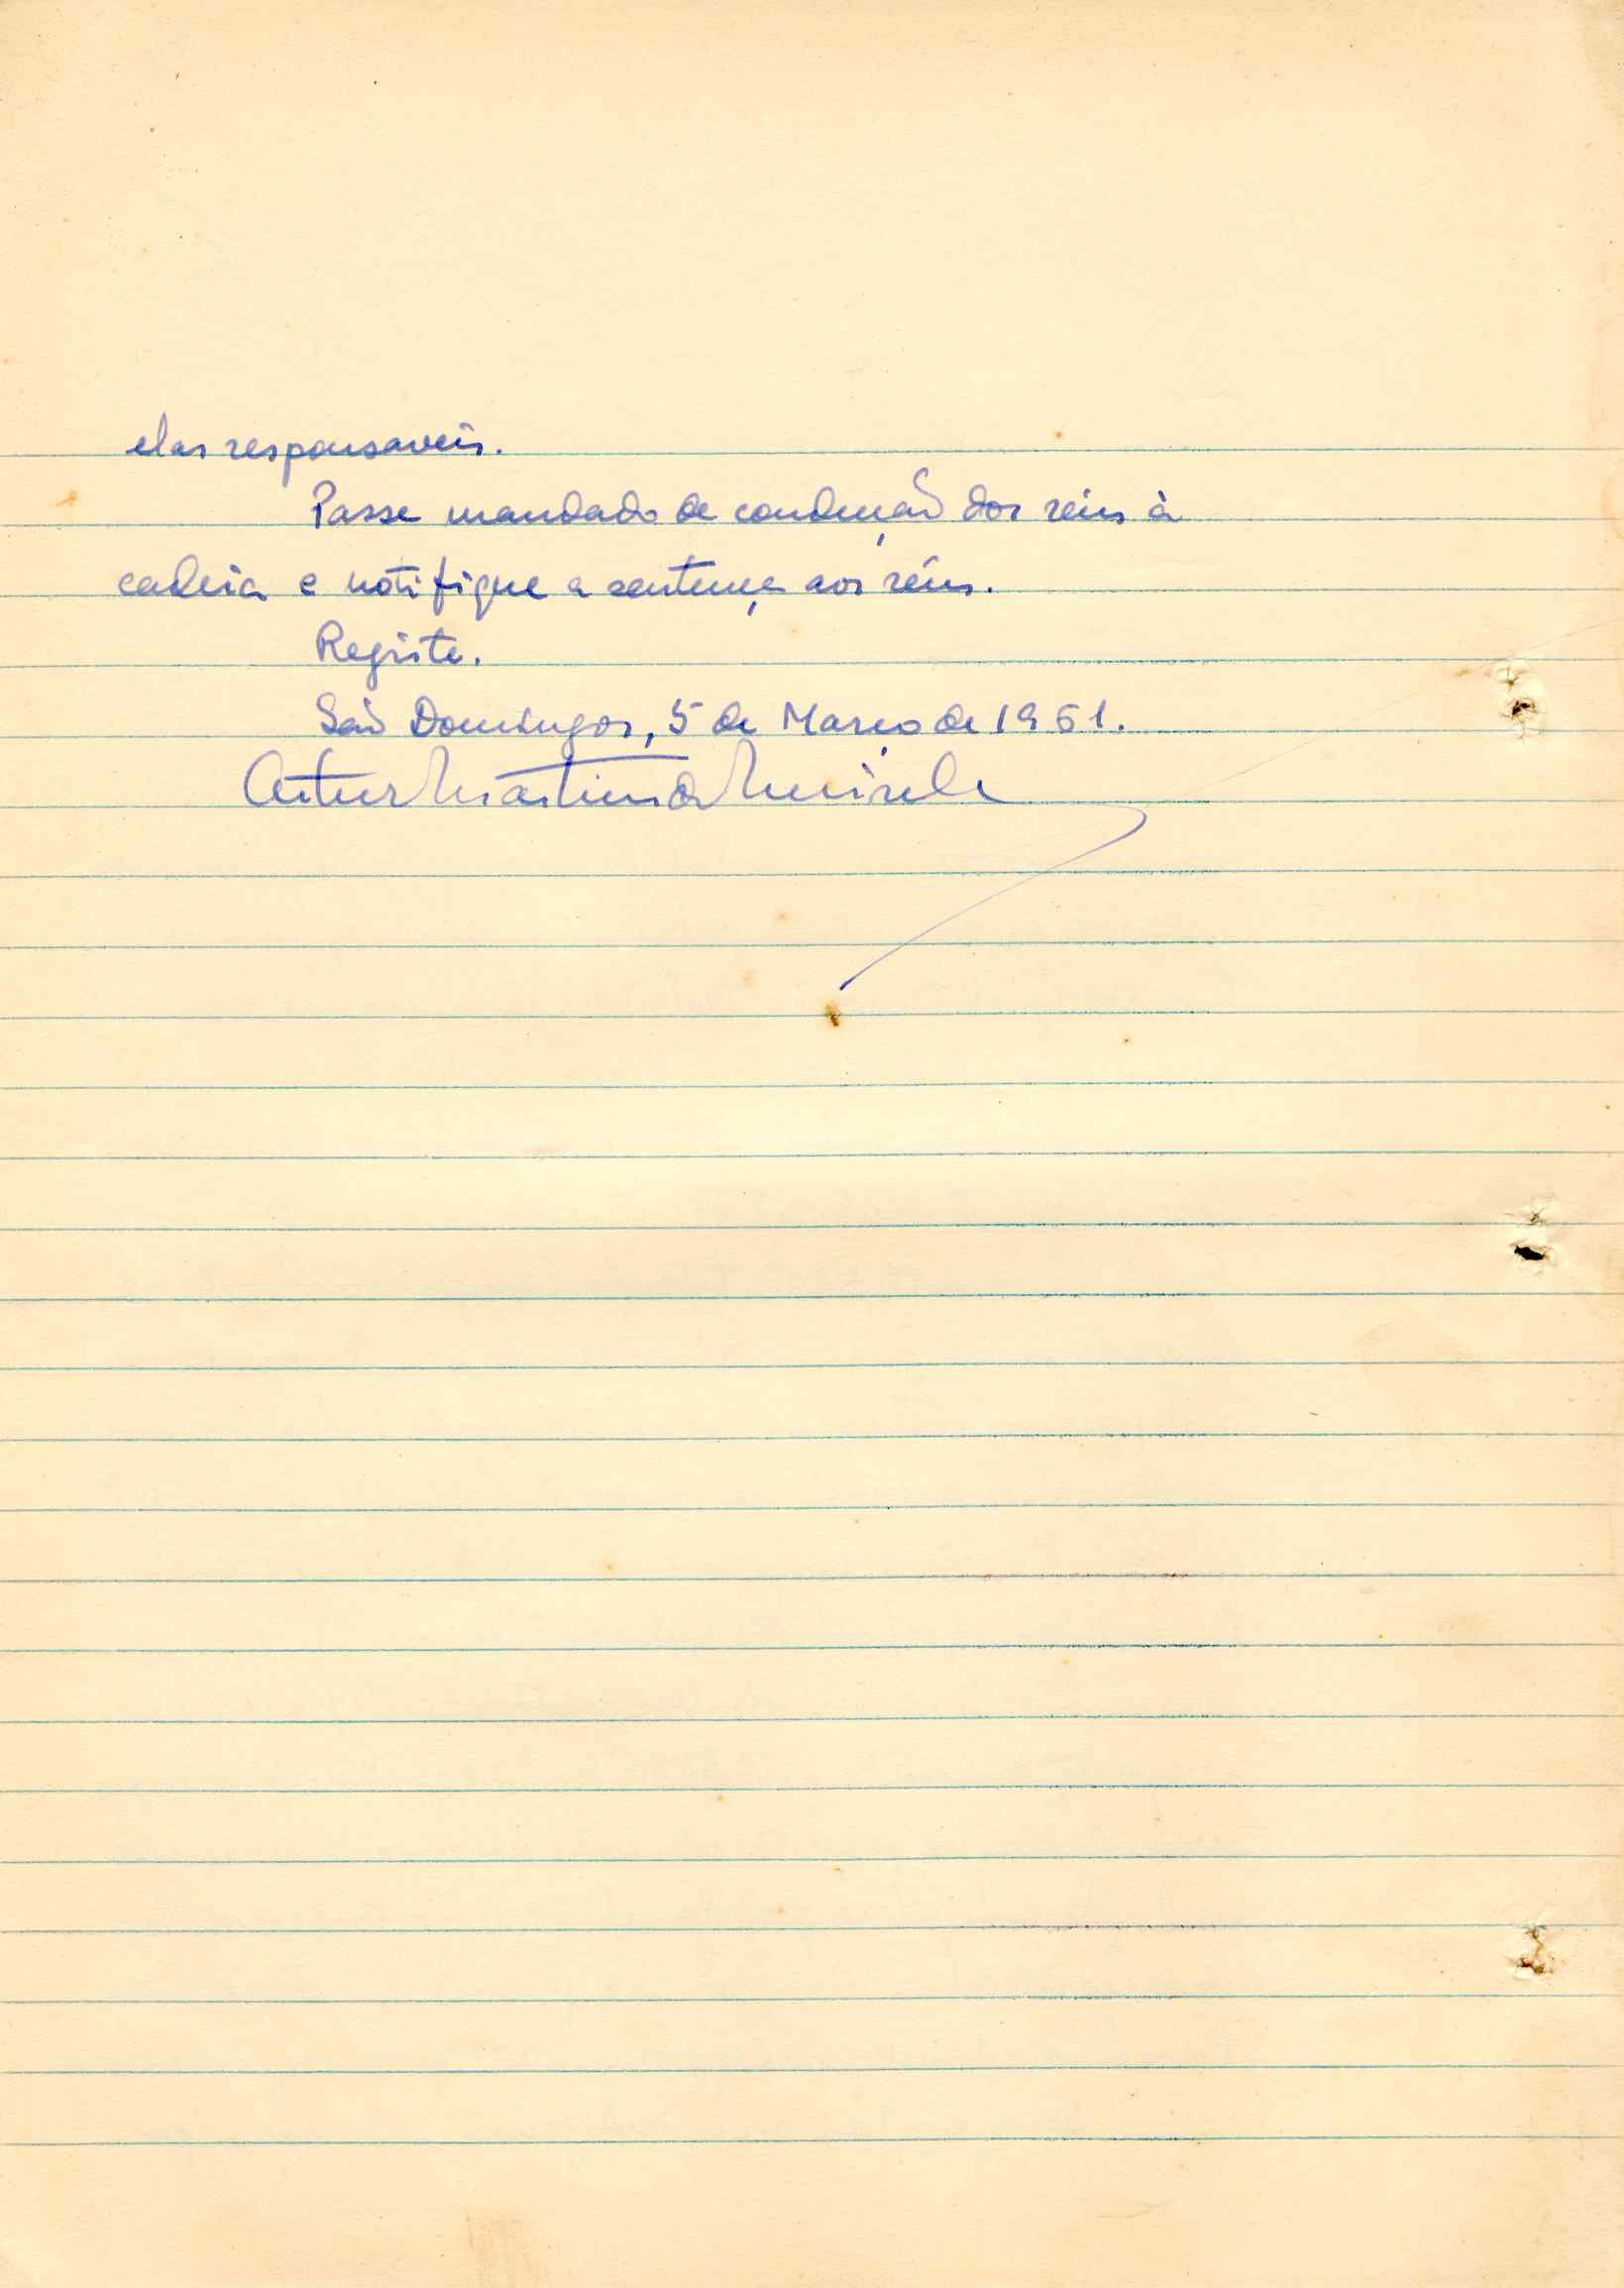 elas responsaveis.
Passe mandado de condução dos réus à
cadeia e notifique a sentença aos réus.
Registe.
São Domingos, 5 de Março de 1961.
Artur Martins de Meireles